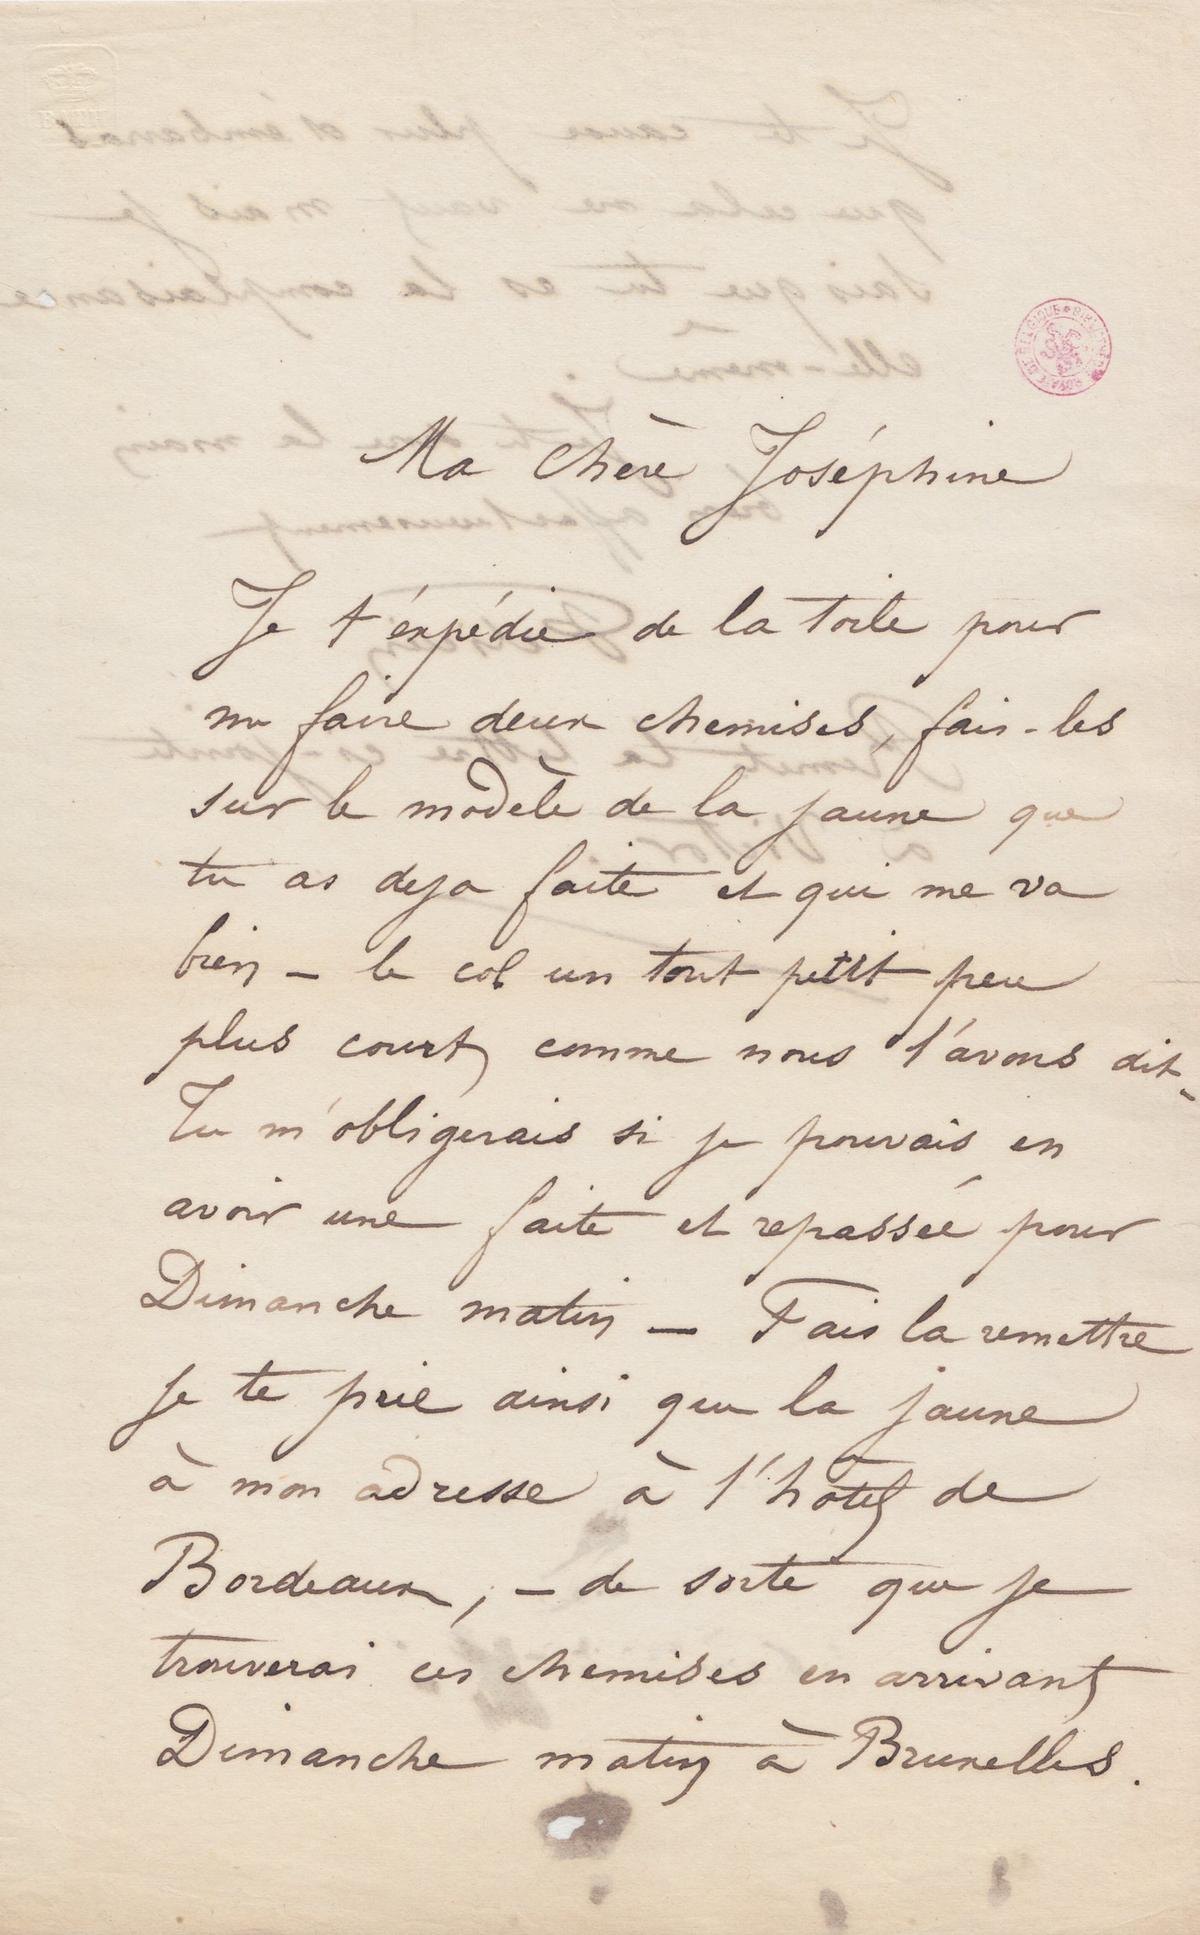 Ma chère Joséphine
Je t'éxpédie de la toile pour
me faire deux chemises, fais-les
sur le modèle de la jaune que
tu as deja faite et qui me va
bien — le col un tout petit peu
plus court, comme nous l'avons dit.
Tu m'obligerais si je pouvais en
avoir une faite et repassée pour
Dimanche matin — Fais la remettre
je te prie ainsi que la jaune
à mon adresse à l'hôtel de
Bordeaux, — de sorte que je
trouverai ces chemises en arrivant
Dimanche matin à Bruxelles.